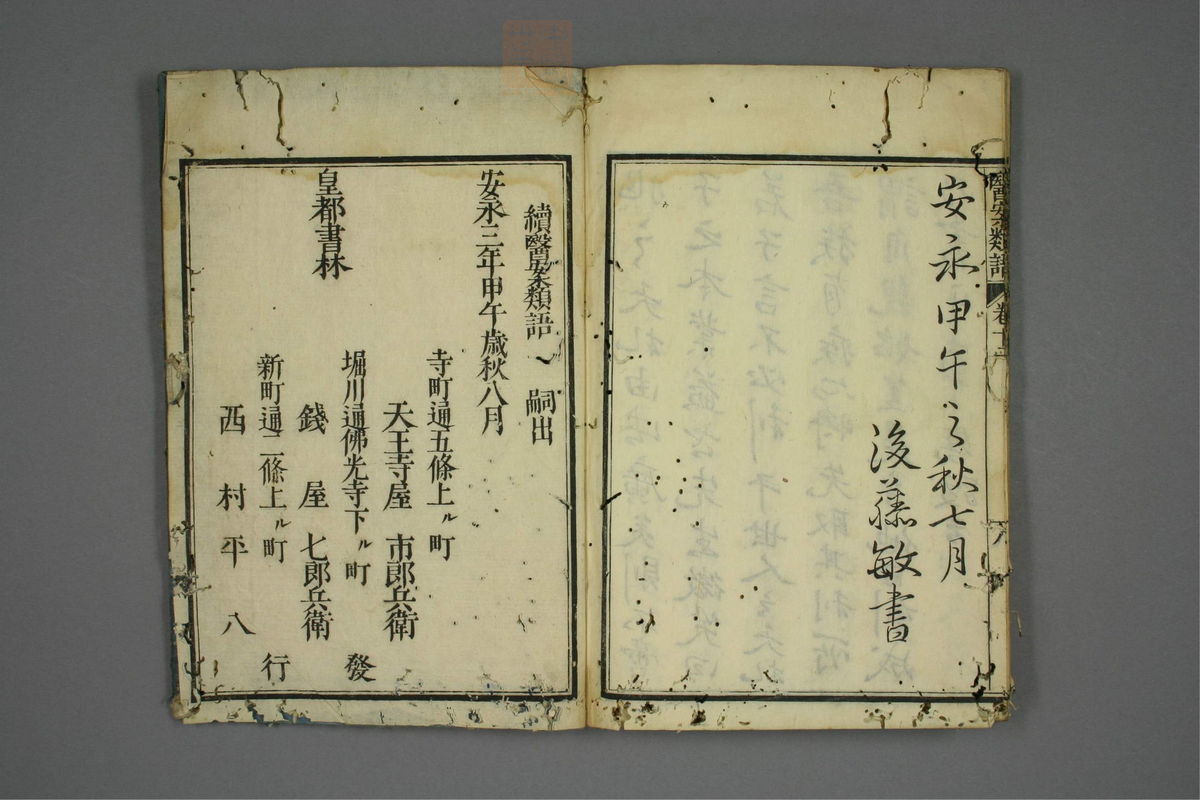 安永甲午之秋七月
後藤敏書
醫案類語 卷十二
續醫案類語 嗣出
安永三年甲午歳秋八月
皇都書林
寺町通五條上ル町
天王寺屋 市郎兵衛
堀川通佛光寺下ル町
錢屋 七郎兵衛
新町通二條上ル町
西村平八
發行